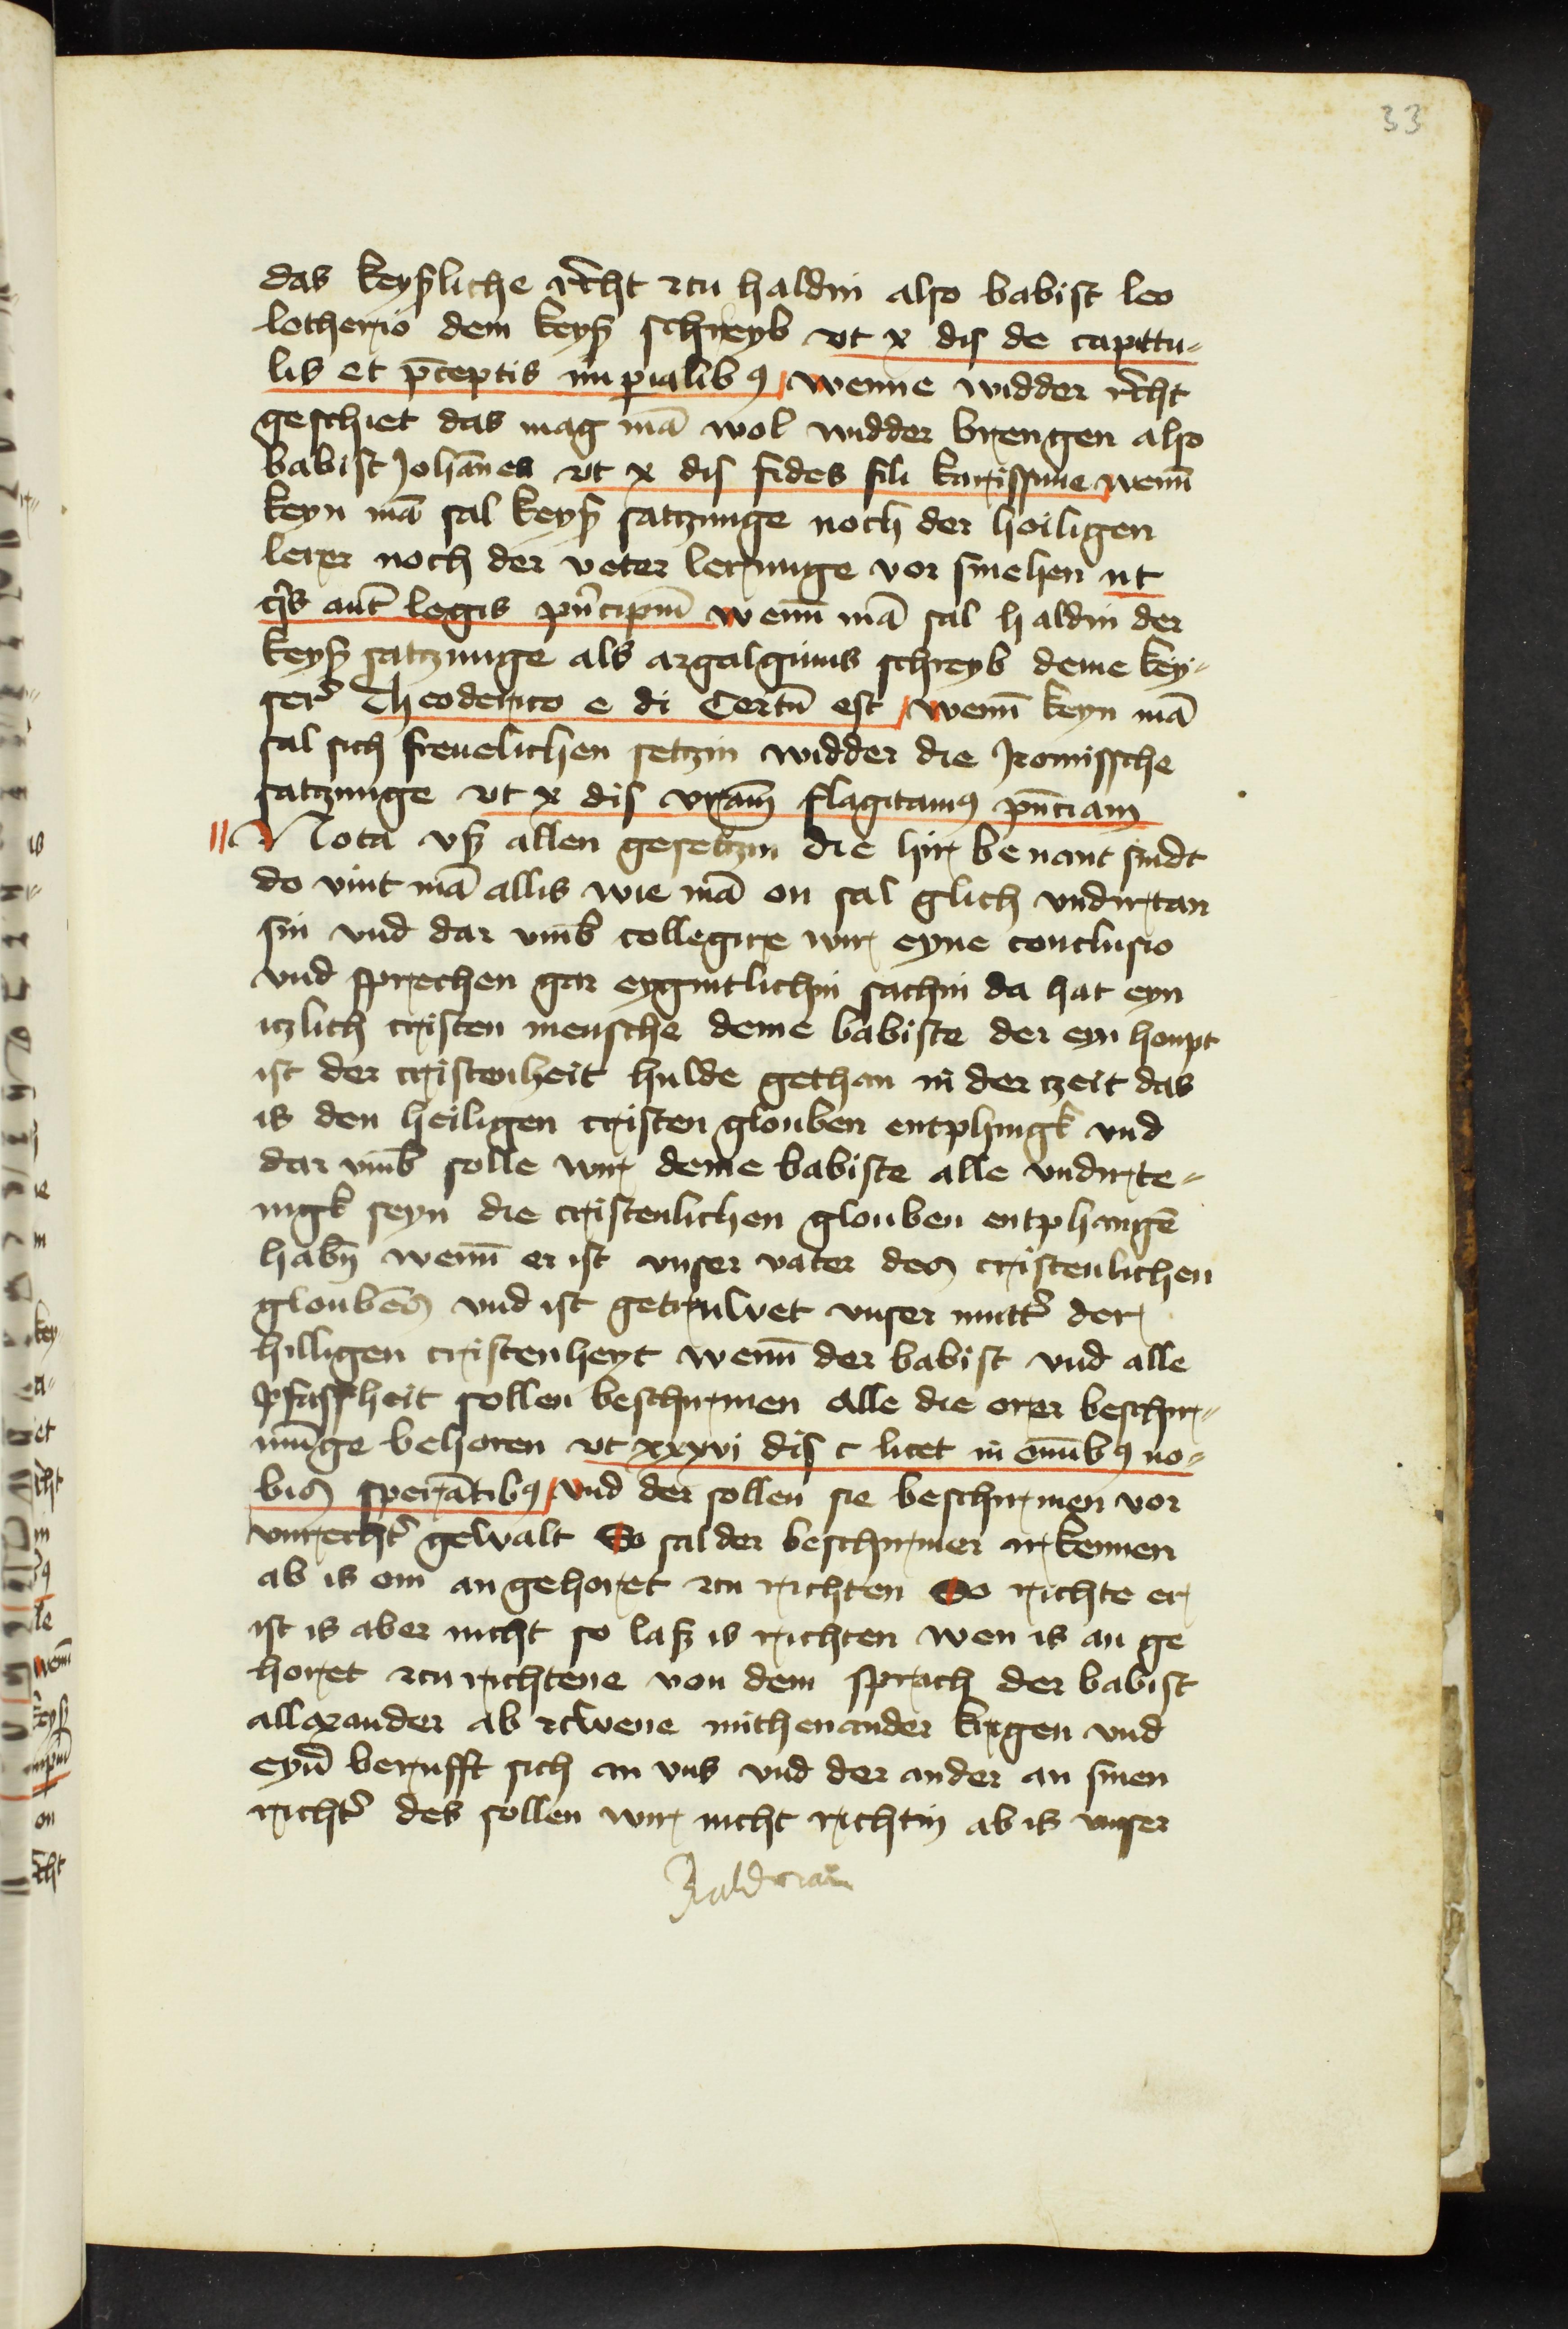 33
das keyßliche rēcht zcu haldin also babist leo
lotherio dem keyß schreyb vt x dis de capittu-
lis et p̄ceptis imꝑialibꝯ wenne widder rēcht
geschiet das mag mā wol widder brengen also
babist Johānes vt x dis fides fili karissime wenn̄
keyn mā sal keyß satzunge noch der heiligen
lerer noch der veter lernunge vor smehen ut
qͥs aut̄ legis pͥncipiū wenn̄ mā sal haldin der
keyß satzunge als argalginus schreyb deme key-
serͤ Theoderico e di Certū est wenn̄ keyn mā
sal sich freuelichen setzin widder die Romissche
satzunge vt x dis vrām flagitamꝯ pn̄ciam
Nota vß allen gesetzin die hir benant sindt
do vint mā allis wie mā on sal glich vndirtan
sin vnd dar vmb collegire wir eyne conclusio
vnd sprechen gar eygintlichin sachin da hat eyn
itzlich cristen mensche deme babiste der eyn houpt
ist der cristenheit hulde gethan in der tzeit das
is den heiligen cristen glouben entphingk vnd
dar vmb solle wir deme babiste alle vndirte-
nigk seyn die cristenlichen glouben entphangē
habn̄ wenn̄ er ist vnser vater des cristenlichen
gloubēs vnd ist getruwet vnser mutt̄ der
hilligen cristenheyt wenn̄ der babist vnd alle
pfaffheit sollen beschirmen alle die orer beschir-
mūge behoren vt xxxvi dis c licet in omībꝯ no-
bis sperātibꝯ vnd der sollen sie beschirmen vor
vnrecht̄ gewalt So sal der beschirmer irkennen
ab is om an gehoret zcu richten So richte er
ist is aber nicht so laß is richten wen is an ge
horet zcu richtene von dem sprach der babist
allexander ab zcwene mithenander krigen vnd
eyn̄ berufft sich an vns vnd der ander an sinen
richt̄ des sollen wir nicht richtin ab is vnser